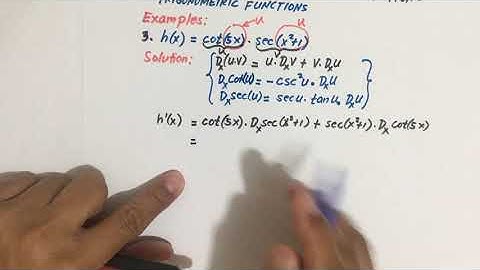 TRIGONOMETRIC FUNCTIONS
Examples: u u
3. h(x) = cot(5x) · sec(x²+1)
Solution: { Dx(u·v) = u·Dxv + v·Dxu
Dx cot(u) = -csc²u · Dxu
Dx sec(u) = secu·tanu·Dxu }
h'(x) = cot(5x)·Dx sec(x²+1) + sec(x²+1)·Dx cot(5x)
=